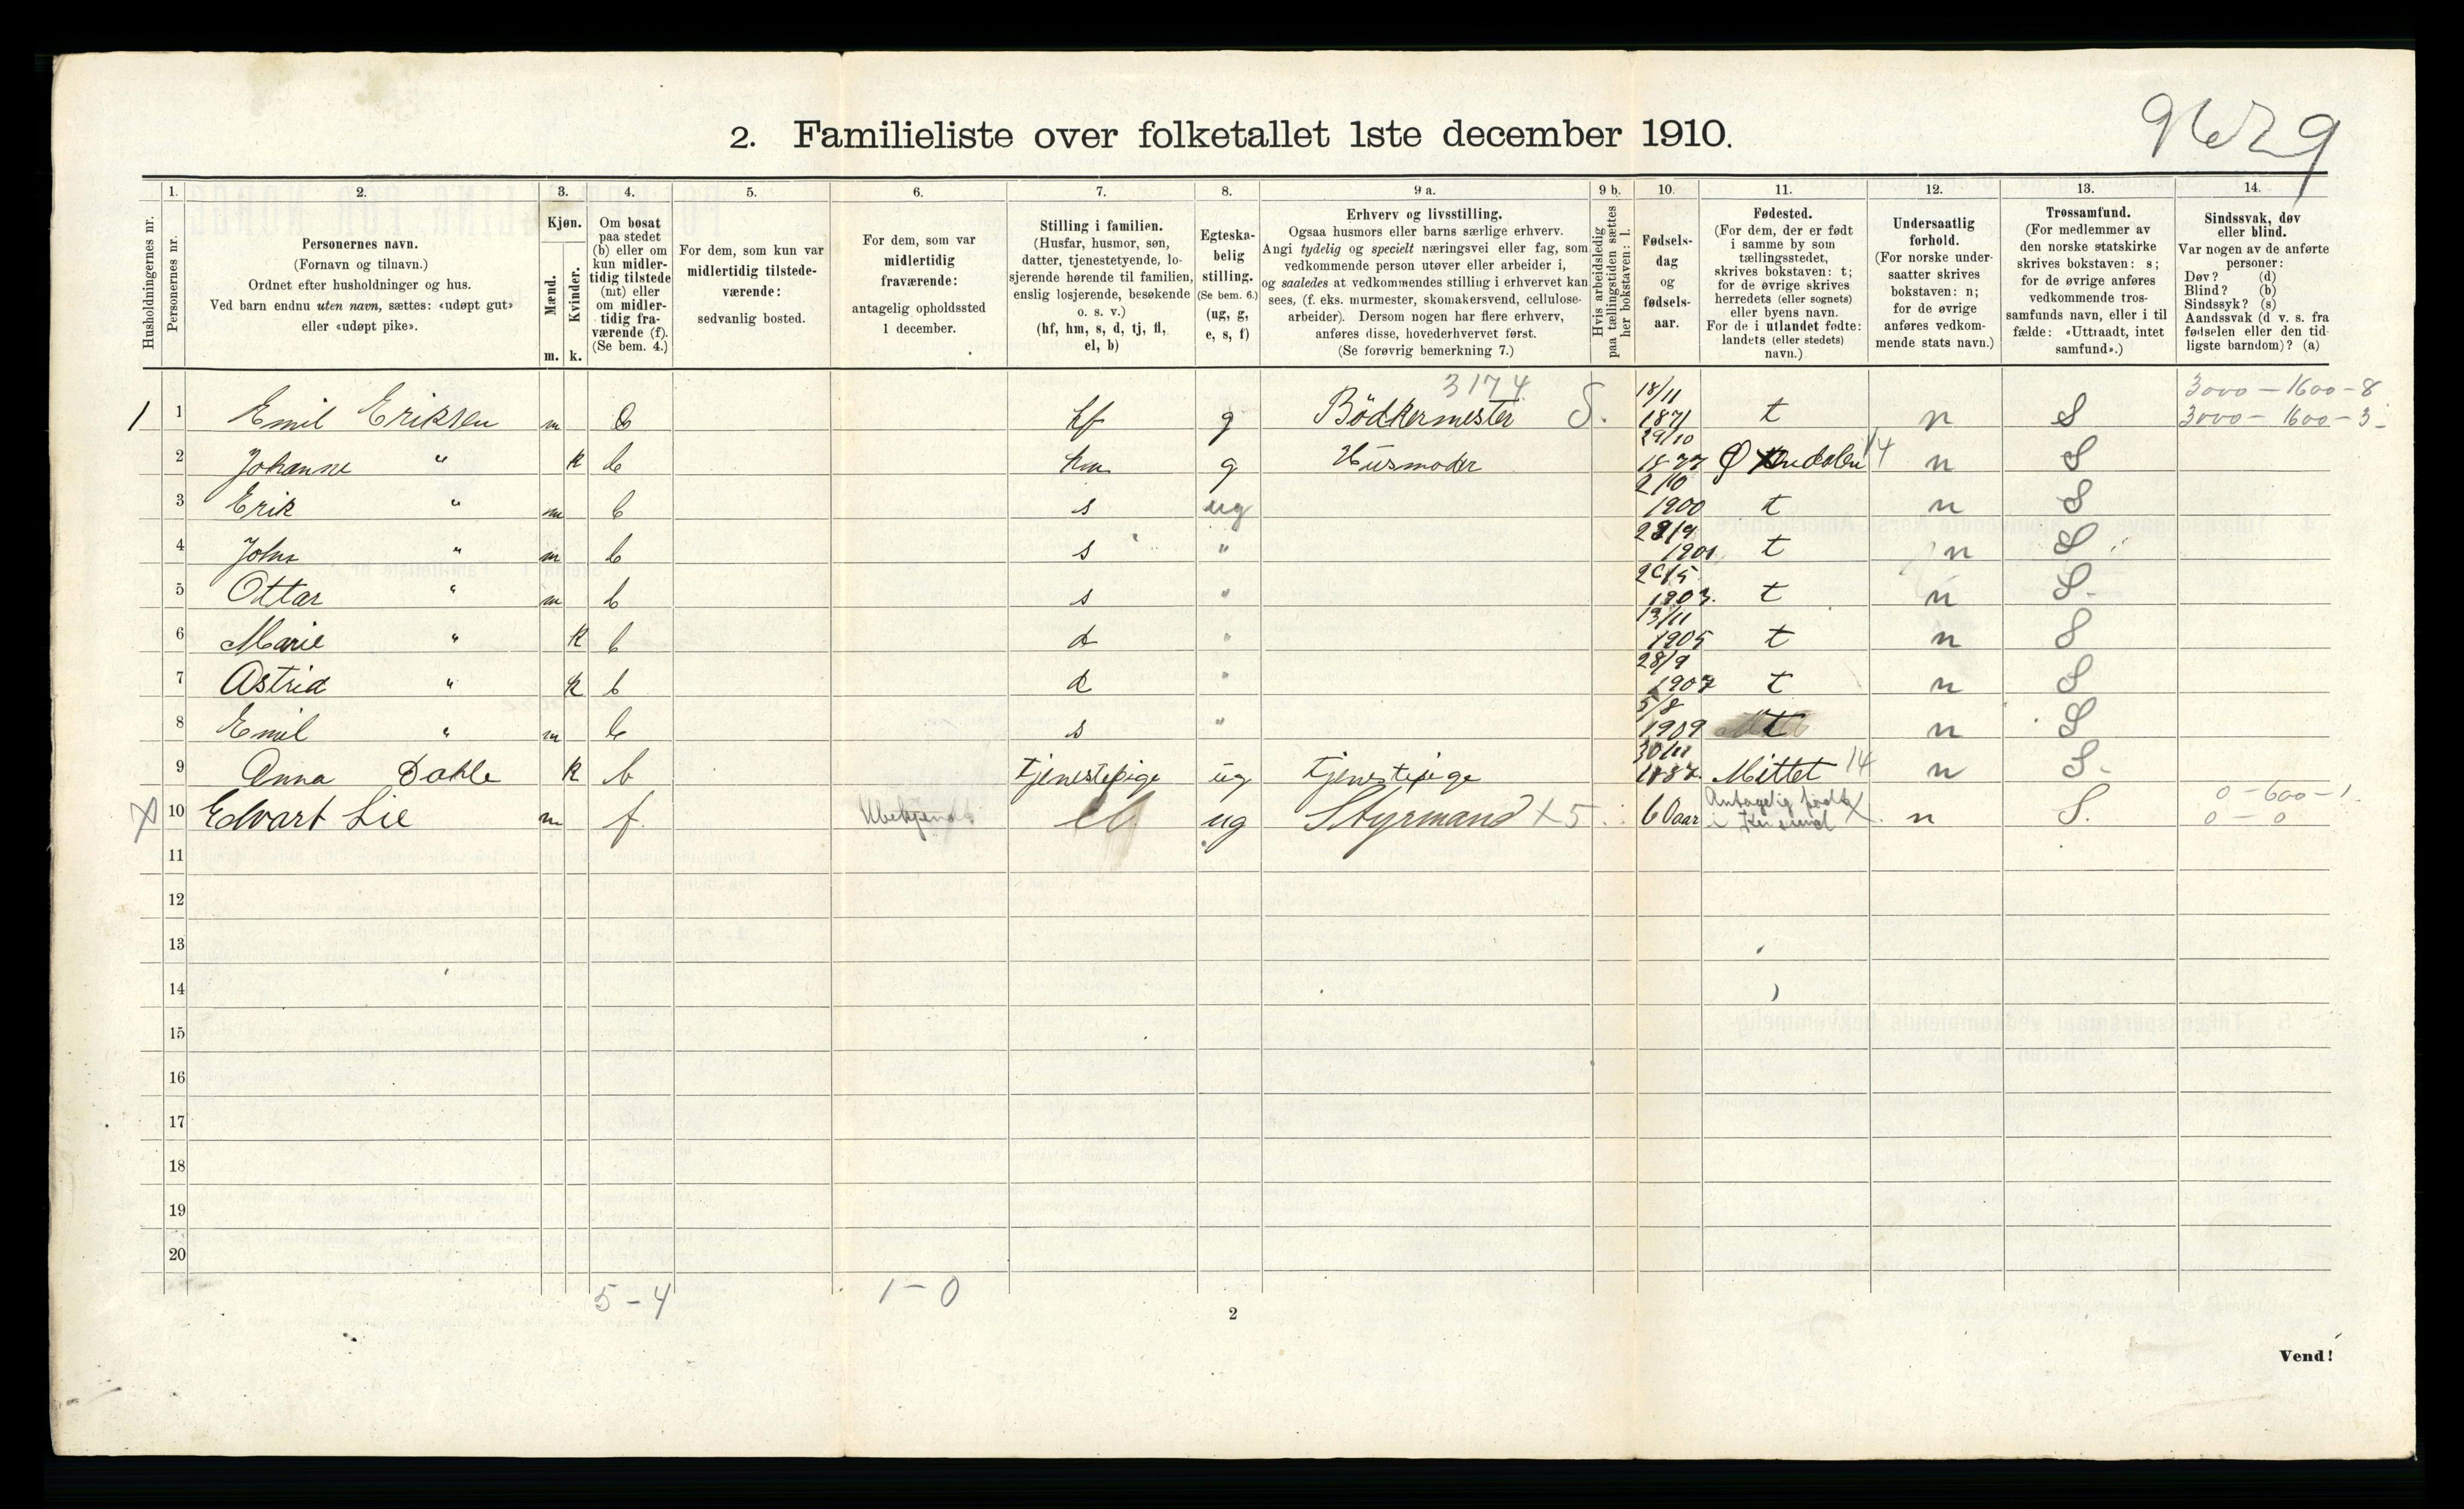 2. Familieliste over folketallet 1ste december 1910.
1. 2. 3. 4. 5. 6. 7. 8. 9 a. 9 b. 10. 11. 12. 13. 14.
Husholdningernes nr.
Personernes nr.
Personernes navn.
(Fornavn og tilnavn.)
Ordnet efter husholdninger og hus.
Ved barn endnu uten navn, sættes: «udøpt gut»
eller «udøpt pike».
Kjøn.
Mænd.
Kvinder.
m. k.
Om bosat
paa stedet
(b) eller om
kun midler-
tidig tilstede
(mt) eller
om midler-
tidig fra-
værende (f).
(Se bem. 4.)
For dem, som kun var
midlertidig tilstede-
værende:
sedvanlig bosted.
For dem, som var
midlertidig
fraværende:
antagelig opholdssted
1 december.
Stilling i familien.
(Husfar, husmor, søn,
datter, tjenestetyende, lo-
sjerende hørende til familien,
enslig losjerende, besøkende
o. s. v.)
(hf, hm, s, d, tj, fl,
el, b)
Egteska-
belig
stilling.
(Se bem. 6.)
(ug, g,
e, s, f)
Erhverv og livsstilling.
Ogsaa husmors eller barns særlige erhverv.
Angi tydelig og specielt næringsvei eller fag, som
vedkommende person utøver eller arbeider i,
og saaledes at vedkommendes stilling i erhvervet kan
sees, (f. eks. murmester, skomakersvend, cellulose-
arbeider). Dersom nogen har flere erhverv,
anføres disse, hovederhvervet først.
(Se forøvrig bemerkning 7.)
Hvis arbeidsledig
paa tællingstiden sættes
her bokstaven: l.
Fødsels-
dag
og
fødsels-
aar.
Fødested.
(For dem, der er født
i samme by som
tællingsstedet,
skrives bokstaven: t;
for de øvrige skrives
herredets (eller sognets)
eller byens navn.
For de i utlandet fødte:
landets (eller stedets)
navn.)
Undersaatlig
forhold.
(For norske under-
saatter skrives
bokstaven: n;
for de øvrige
anføres vedkom-
mende stats navn.)
Trossamfund.
(For medlemmer av
den norske statskirke
skrives bokstaven: s;
for de øvrige anføres
vedkommende tros-
samfunds navn, eller i til
fælde: «Uttraadt, intet
samfund».)
Sindssvak, døv
eller blind.
Var nogen av de anførte
personer:
Døv? (d)
Blind? (b)
Sindssyk? (s)
Aandssvak (d v. s. fra
fødselen eller den tid-
ligste barndom)? (a)
3174 18/11 3000 – 1600 – 8
1 1 Emil Eriksen m b hf g Bödkermester S. 1871 t n S 3000 – 1600 – 3
29/10
2 Johanne " k b hm g Husmoder 1877 14 n S
2/10
3 Erik " m b s ug 1900 t n S
4 John " m b s " 1901 t n S
5 Ottar " m b s " 1903. t n S.
13/11
6 Marie " k b d " 1905 t n S
28/9
7 Astrid " k b d " 1907 t n S
5/8
8 Emil " m b s " 1909 t n S
9 Anna Dahle k b tjenestepige ug tjenestepige 1887. Mittet 14 n S.
Antagelig født 0 – 600 – 1
X 10 Edvart Lie m f. Ubekjendt el ug Styrmand X 5 60 aar i X n S. 0 – 0
11
12
13
14
15
16
17
18
19
20
5 – 4 1 – 0
2
Vend!